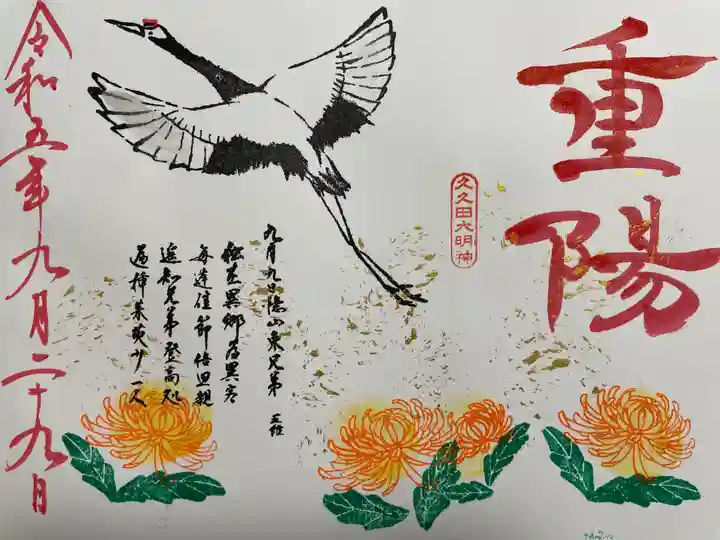 重陽
久久田大明神
九月九日憶山東兄弟 王維
独在異郷為異客
毎逢佳節倍思親
遥知兄弟登高処
遍挿茱萸少一人
令和五年九月二十九日